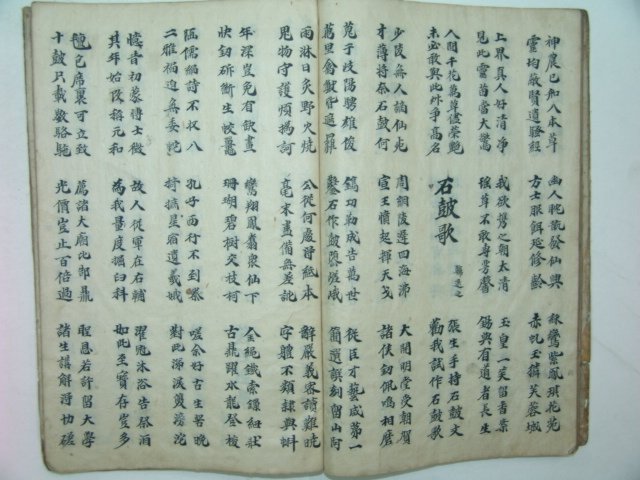 神農已知八本草
靈均敬賢遺騷經
幽人晩歲發仙興
方士服餌延修齡
驂鸞紫鳳琪花苑
赤虬玉麟芙蓉城
上界真人好清淨
見此靈苗當大驚
我欲携之朝太清
瑤草不敢專芳馨
玉皇一笑留香案
錫與有道者長生
人間千花萬草儘榮艶
未必敢與此艸爭高名
石鼓歌 韓退之
張生手持石鼓文
勸我試作石鼓歌
少陵無人謫仙死
才薄將奈石鼓何
周綱陵遲四海沸
宣王憤起揮天戈
大開明堂受朝賀
諸侯釼佩鳴相磨
蒐于岐陽騁雄俊
萬里禽獸皆遮羅
鐫功勒成告萬世
鑿石作鼓隳嵯峨
從臣才藝咸第一
簡選譔刻留山阿
雨淋日炙野火燒
鬼物守護煩撝訶
公從何處得紙本
毫末盡備無差訛
辭嚴義密讀難曉
字體不類隸與蝌
年深豈免有缺畫
快釰斫斷生蛟鼉
鸞翔鳳翥衆仙下
珊瑚碧樹交枝柯
金繩鐵索鎖紐壯
古鼎躍水龍登梭
陋儒編詩不収入
二雅褊迫無委蛇
孔子西行不到秦
掎摭星宿遺羲娥
嗟余好古生苦晩
對此涕淚雙滂沱
憶昔初蒙博士徵
其年始改稱元和
故人從軍在右輔
為我量度掘臼科
濯冠沐浴告祭酒
如此至寶存豈多
氊包席裹可立致
十皷只載數駱駞
薦諸大廟比郜鼎
光價豈止百倍過
聖恩若許留大學
諸生講解得切磋